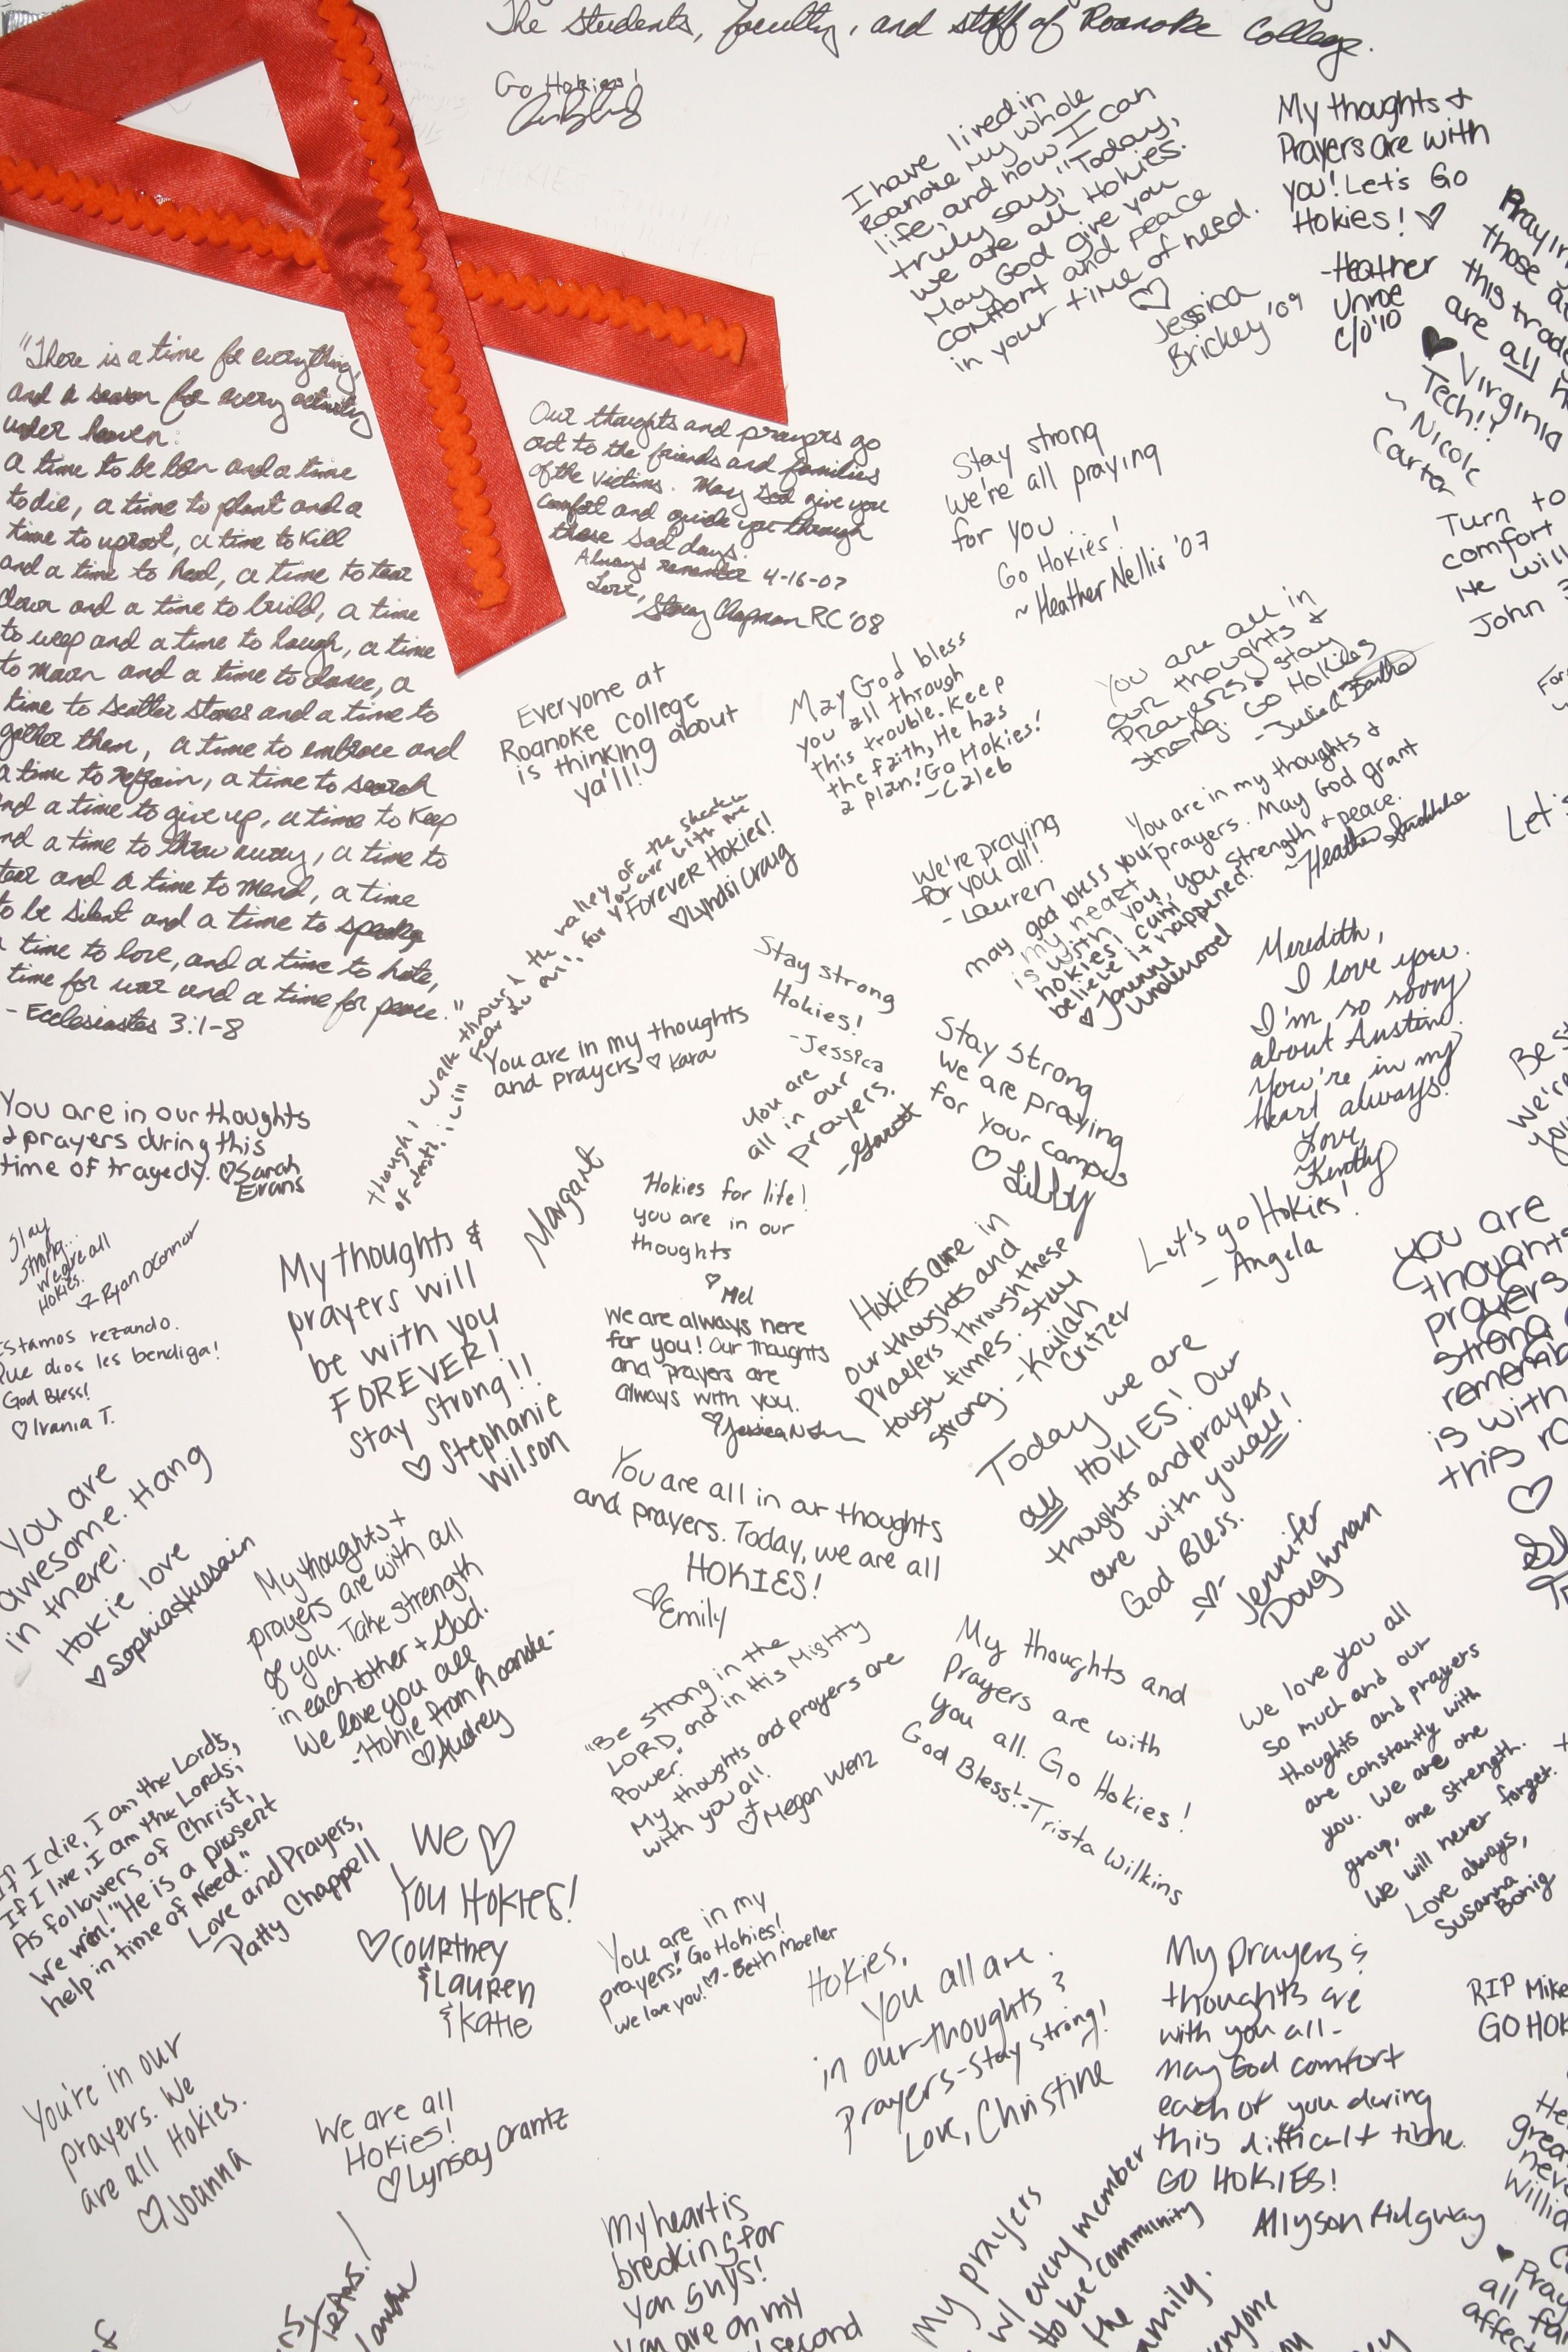 The students, faculty, and staff of Roanoke College.
Go Hokies!
I have lived in
Roanoke my whole
life, and now I can
truly say, "Today,
we are all Hokies.
May God give you
comfort and peace
in your time of need.
♡
Jessica
Brickey '09
My thoughts &
Prayers are with
you! Let's Go
Hokies! ♡
-Heather
Unroe
c/o '10
those
are all
♥ Virginia
Tech!!
~ Nicole
Carter
"There is a time for everything,
and a season for every activity
under heaven:
a time to be born and a time
to die, a time to plant and a
time to uproot, a time to kill
and a time to heal, a time to tear
down and a time to build, a time
to weep and a time to laugh, a time
to mourn and a time to dance, a
time to scatter stones and a time to
gather them, a time to embrace and
a time to refrain, a time to search
and a time to give up, a time to keep
and a time to throw away, a time to
tear and a time to mend, a time
to be silent and a time to speak
a time to love, and a time to hate,
time for war and a time for peace."
- Ecclesiastes 3:1-8
Our thoughts and prayers go
out to the friends and families
of the victims. May God give you
comfort and guide you through
these sad days.
Always remember 4-16-07
Love,
Stacy Chapman RC '08
Stay strong
we're all praying
for you...
Go Hokies!
~Heather Nellis '07
Turn to
comfort
He will
John 3
Everyone at
Roanoke College
is thinking about
ya'll!
May God bless
you all through
this trouble. Keep
the faith, He has
a plan! Go Hokies!
-Caleb
You are all in
our thoughts &
prayers! stay
strong. Go Hokies
-Julia
You are in my thoughts &
prayers. May God grant
you strength & peace.
~Heather
Let's
though I walk through the valley of the shadow
of death, i will fear no evil, for you are with me
Forever Hokies!
♡Lyndsi Craig
We're praying
for you all!
-Lauren
may god bless you.
my heart
is with you,
hokies! i can't
believe it happened!
♡ Joanna
Underwood
Stay strong
Hokies!
-Jessica
Meredith,
I love you.
I'm so sorry
about Austin.
You're in my
heart always.
Love,
You are in my thoughts
and prayers ♡ Kara
You are
all in our
prayers.
-Garrett
Stay strong
we are praying
for your campus
♡ Libby
You are in our thoughts
& prayers during this
time of tragedy. ♡Sarah
Evans
Margaret
Hokies for life!
you are in our
thoughts
♡ Mel
Let's go Hokies!
- Angela
Stay
strong...
we are all
Hokies.
Ryan O'Connor
My thoughts &
prayers will
be with you
FOREVER!
stay strong!!
♡ Stephanie
Wilson
We are always here
for you! Our thoughts
and prayers are
always with you.
♡ Jessica
Hokies are in
our thoughts and
Prayers through these
tough times. Stay
strong. -Kailah
Critzer
Estamos rezando.
Que dios les bendiga!
God Bless!
♡ Irania T.
You are
thoughts
prayers
strong
remember
is with
this
Today we are
all HOKIES! Our
thoughts and prayers
are with you all!
God Bless.
-♡- Jennifer
Doughman
You are
awesome. Hang
in there!
Hokie love
♡ Sophia Hussain
You are all in our thoughts
and prayers. Today, we are all
HOKIES!
♡ Emily
My thoughts +
prayers are with all
of you. Take strength
in each other + God.
We love you all
-Hokie from Roanoke-
♡ Audrey
"Be strong in the
LORD and in His Mighty
Power."
My thoughts and prayers are
with you all!
♡ Megan Wenz
My thoughts and
Prayers are with
you all. Go Hokies!
God Bless! -Trista Wilkins
We love you all
so much and our
thoughts and prayers
are constantly with
you. We are one
group, one strength.
We will never forget.
Love always,
Susanna
Bonig
If I die, I am the Lords,
If I live, I am the Lords;
As followers of Christ,
We win! "He is a present
help in time of Need."
Love and Prayers,
Patty Chappell
We ♡
You Hokies!
♡ Courtney
& Lauren
& Katie
You are in my
prayers! Go Hokies!
We love you! ♡- Beth Moeller
Hokies,
You all are
in our thoughts &
prayers-Stay strong!
Love, Christine
My prayers &
thoughts are
with you all-
May God comfort
each of you during
this difficult time.
GO HOKIES!
Allyson Ridgway
RIP Mike
GO HOK
You're in our
prayers. We
are all Hokies.
♡ Joanna
We are all
Hokies!
♡ Lynsey Crantz
My heart is
breaking for
you guys!
You are on my
second
My prayers
w/ every member
the Hokie community
family.
♥ Pray
all
affect